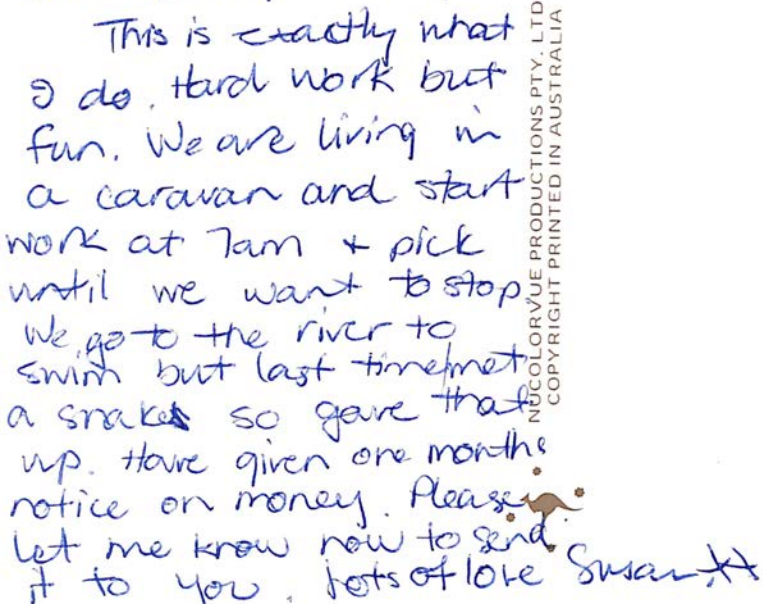 This is exactly what
I do. Hard work but
fun. We are living in
a caravan and start
work at 7am + pick
until we want to stop.
We go to the river to
swim but last time met
a snake so gave that
up. Have given one months
notice on money. Please
let me know how to send
it to you. Lots of love Susan xx
NUCOLORVUE PRODUCTIONS PTY. LTD
COPYRIGHT PRINTED IN AUSTRALIA